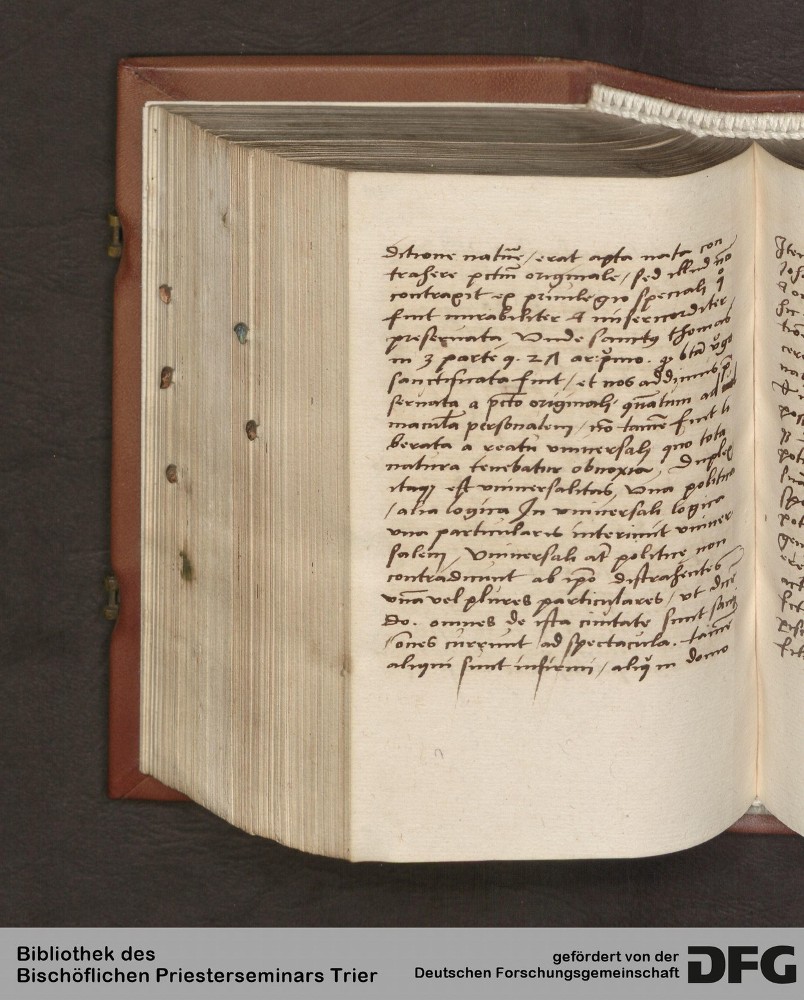 ditione natu͞e / erat apta nata con
trahere pctm̄ originale / sed illud nō
contraxit ex privilegio speciali q̊
fuit mirabiliter & misericorditer /
preservata, Unde sanctus thomas
in 3 parte q. 27 ar: pͥmo. ꝙ bta vͥgo
sanctificata fuit / et nos addimus p̄
servata a pcto originali quātum ad
maculā personalem / nō tamē fuit li
berata a reatu universali quo tota
natura tenebatur obnoxia, Duplex
itaqȝ est universalitas, Una politica
/ alia logica In universali logica
una particularis interimit univer
salem, Universali at̄ politice non
contradicunt ab ipo distrahentes
unā vel plures particulares / ut
do. omnes de ista civitate sunt
/ oēs currunt ad spectacula. tamē
aliqui sunt infirmi / aliqͥ in domo
Bibliothek des
Bischöflichen Priesterseminars Trier
gefördert von der
Deutschen Forschungsgemeinschaft
DFG